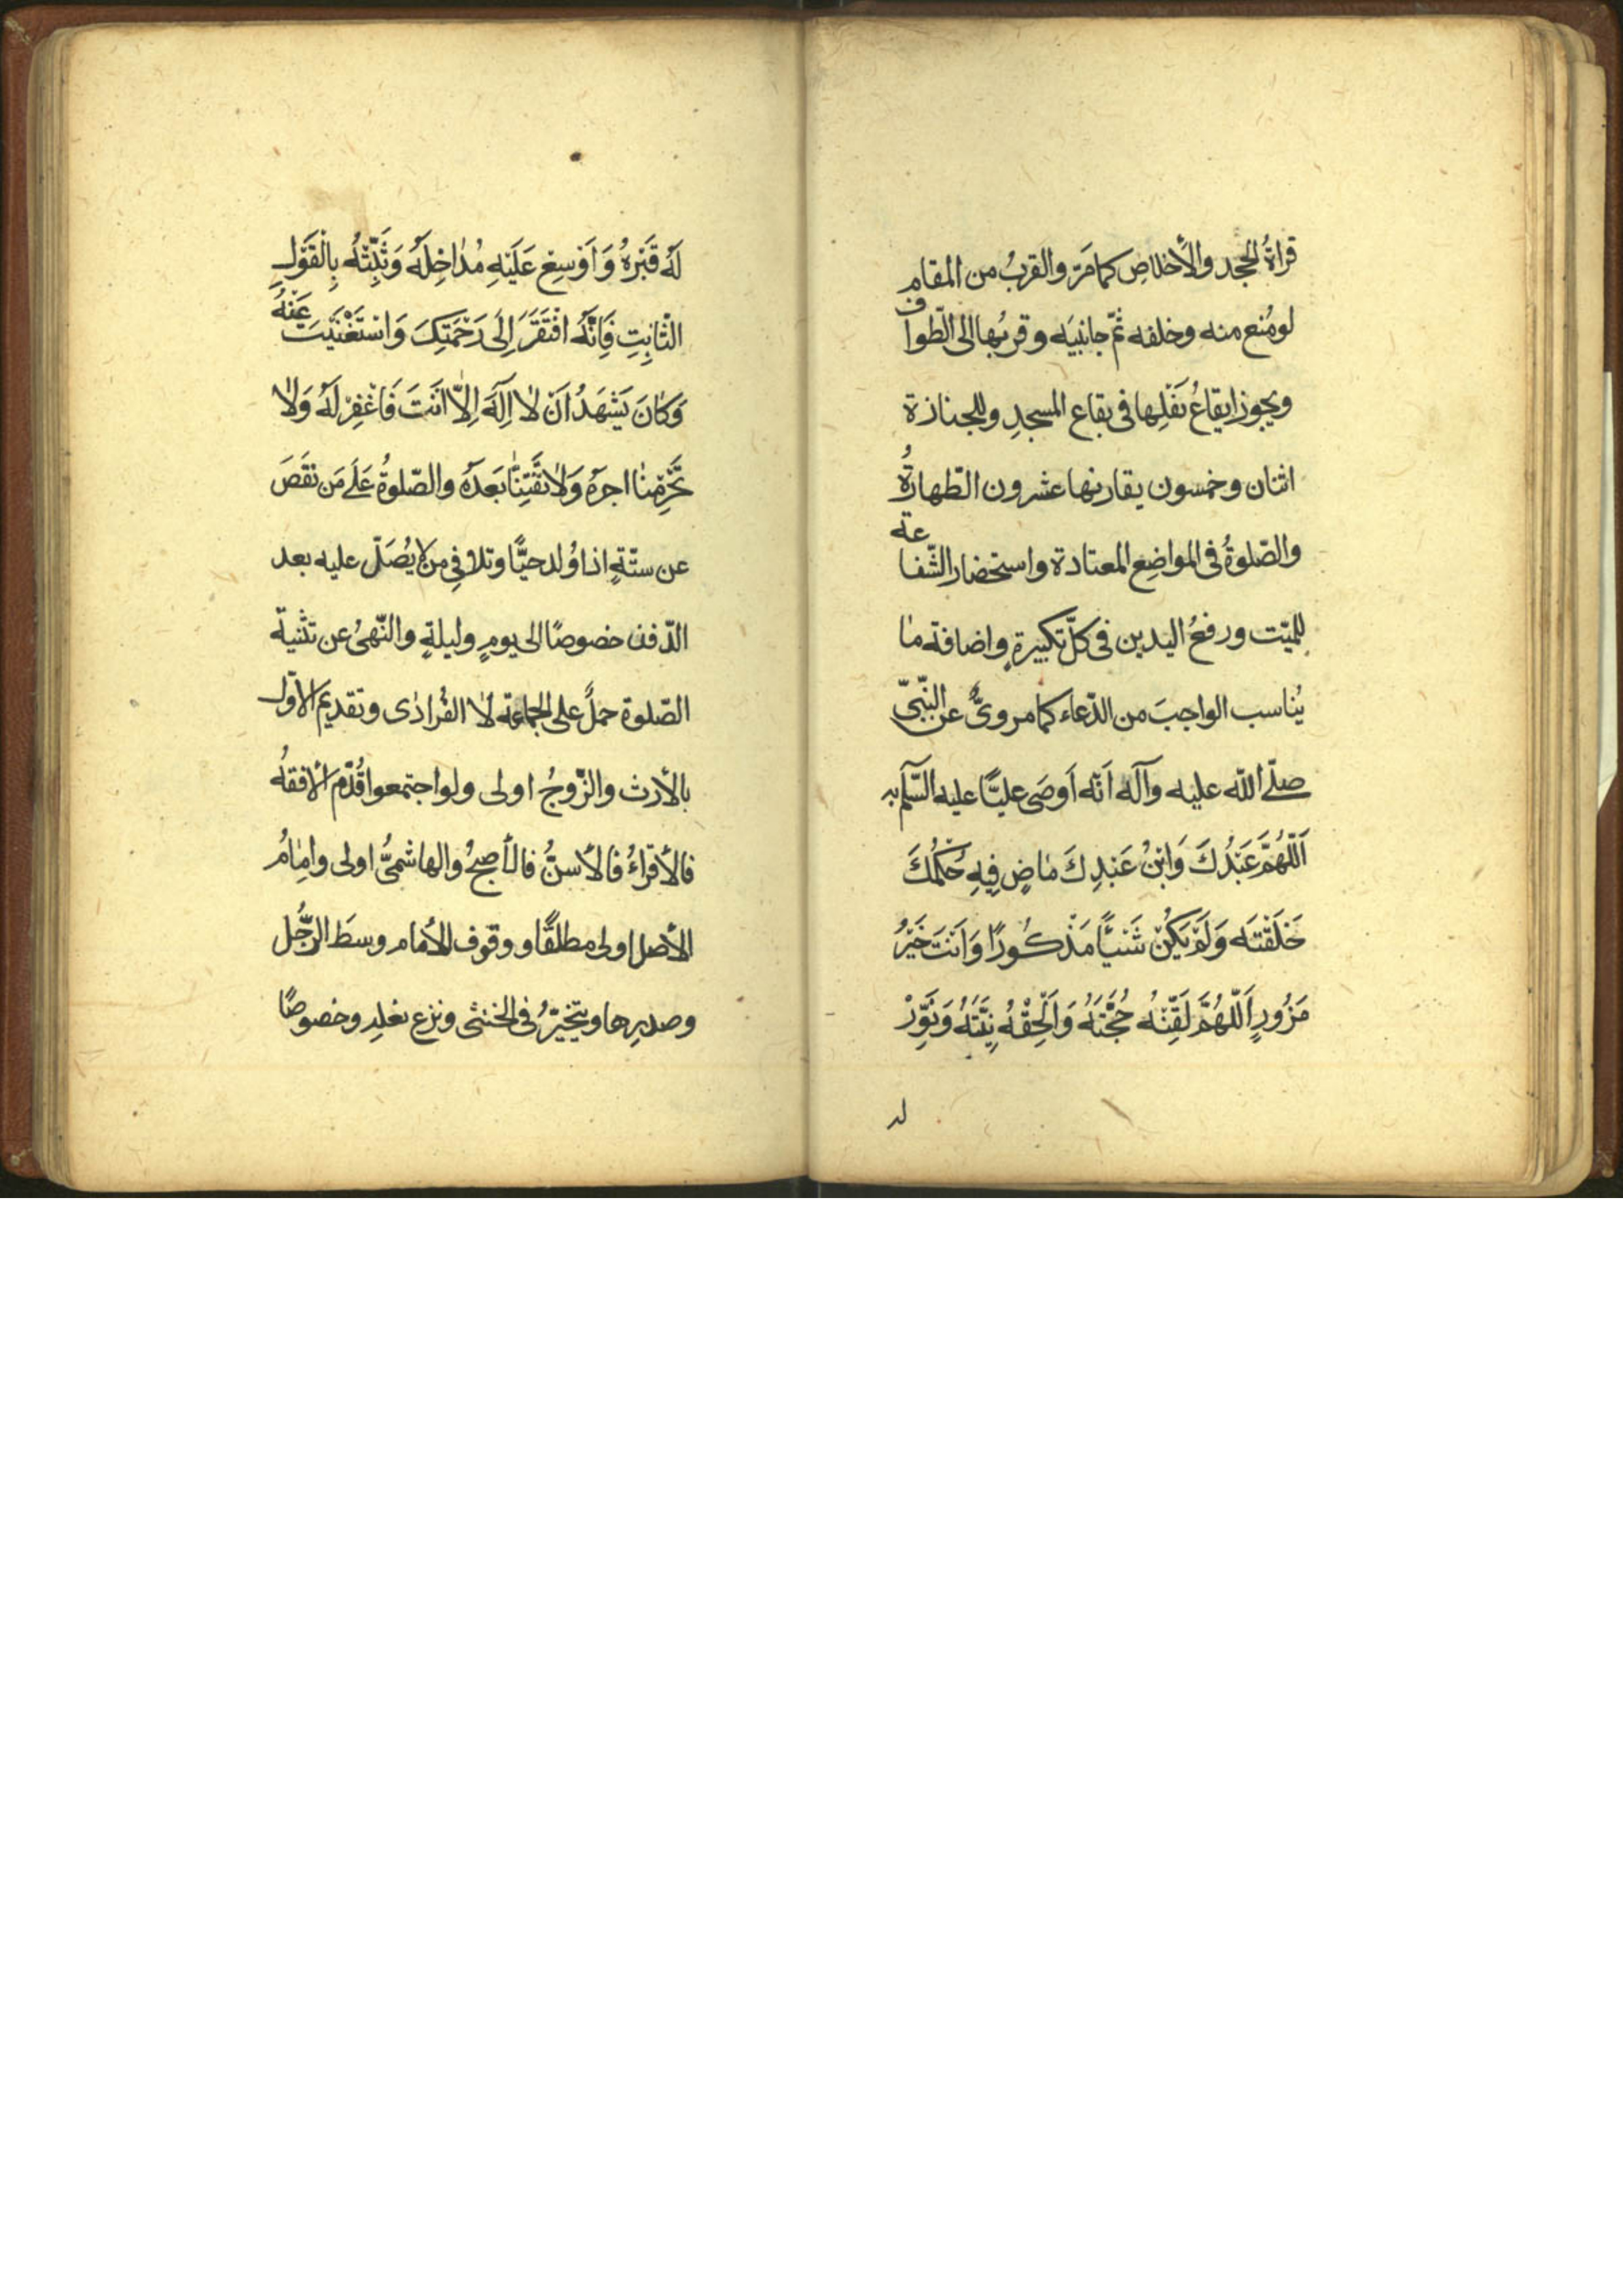 قراةُ الجحد والأخلاص كما مَرّ والقربُ من المقام
لو مُنع منه وخلفه ثمّ جانبيَه وقربُها الى الطّواف
ويجوز ايقاعُ نَفْلِها فى بقاع المسجدِ وللجنازة
اثنان وخمسون يقارنها عشرون الطّهارةُ
والصّلوةُ فى المواضِع المعتادة واستحضار الشّفاعة
للميّت ورفعُ اليدين فى كلّ تكبيرةٍ واضافة ما
يُناسب الواجبَ من الدّعاء كما مروىٌّ عن النّبىّ
صلّى اللّه عليه وآله اَنّه اَوصَى عليًّا عليه السّلم به
اَللّٰهُمَّ عَبْدُكَ وَابْنُ عَبْدِكَ مَاضٍ فِيهِ حُكْمُكَ
خَلَقْتَه وَلَمْ يَكُنْ شَيْئًا مَذْكُورًا وَاَنْتَ خَيْرُ
مَزُورٍ اَللّٰهُمَّ لَقِّنْهُ حُجَّتَهُ وَاَلْحِقْهُ نِبَيَّهُ وَنَوِّرْ
لـه
لَهُ قَبْرَهُ وَاَوْسِعْ عَلَيْهِ مُدَاخِلَهُ وَثَبِّتْهُ بِالْقَوْلِ
الثّابِتِ فَاِنَّهُ افْتَقَرَ اِلَى رَحْمَتِكَ وَاسْتَغْنَيْتَ عَنْهُ
وَكَانَ يَشْهَدُ اَنْ لاٰ اِلَهَ اِلاّ اَنْتَ فَاغْفِرْ لَهُ وَلاٰ
تَحْرِمْنا اجرهُ وَلاٰ تَفْتِنّا بَعدَهُ والصّلوةُ عَلَى مَن نقَصَ
عن ستّةٍ اذا وُلد حيًّا وتلافى من لا يُصَلّ عليه بعد
الدّفن خصوصًا الى يومٍ وليلةٍ والنّهىُ عن تثنية
الصّلوة حملٌ على الجماعة لاٰ الفُرادٰى وتقديم الأوّل
بالأرث والزّوجُ اولى ولو اجتمعوا قُدّم الأفقهُ
فالأقراءُ فالأسنُّ فالأصبحُ والهاشمىُّ اولى وامٰامُ
الأصل اولى مطلقًا ووقوف الأمام وسَط الرّجُل
وصدرِها ويتخيّرُ فى الخنثى ونزع نعلِه وخصوصًا